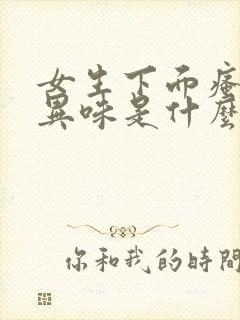 女生下面瘙
異味是什麼
你和我的時間